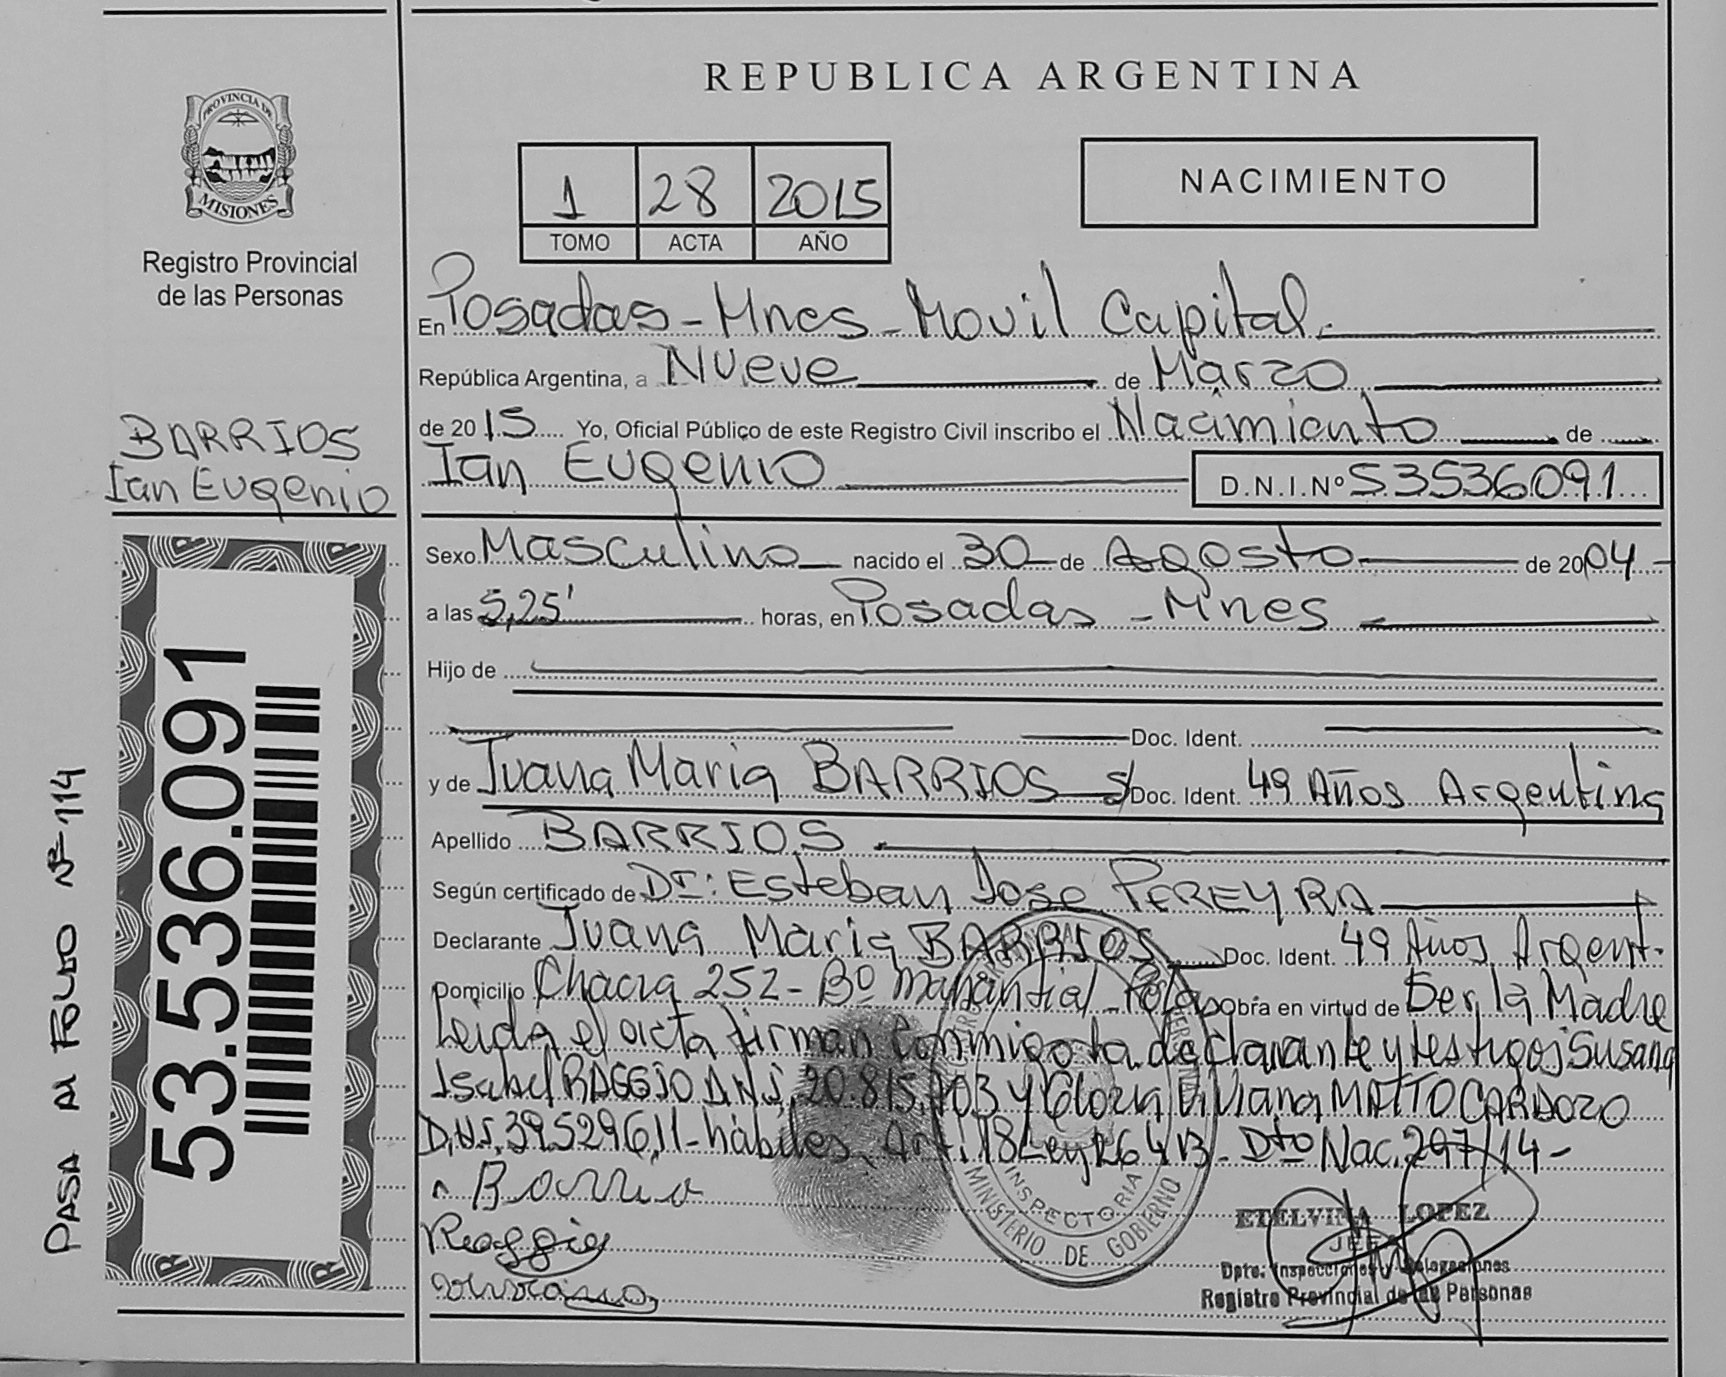 REPUBLICA ARGENTINA
PROVINCIA DE
MISIONES
Registro Provincial
de las Personas
1 28 2015
TOMO ACTA AÑO
NACIMIENTO
En Posadas - Mnes - Movil Capital.
República Argentina, a Nueve de Marzo
de 2015 Yo, Oficial Público de este Registro Civil inscribo el Nacimiento de
Ian Eugenio D.N.I.Nº 53536091
BARRIOS
Ian Eugenio
Sexo Masculino nacido el 30 de Agosto de 2004.-
a las 5,25' horas, en Posadas - Mnes
Hijo de
Doc. Ident.
y de Juana Maria BARRIOS s/ Doc. Ident. 49 Años Argentina
Apellido BARRIOS
Según certificado de Dr: Esteban Jose PEREYRA
Declarante Juana Maria BARRIOS Doc. Ident. 49 Años Argent.
Domicilio Chacra 252 - Bº Manantial - Pdas obra en virtud de Ser la Madre
Leida el acta firman conmigo la declarante y testigos Susana
Isabel RAGGIO D.N.I. 20.815. y Gloria Viviana MATTO CARDOZO
D.N.I. 39529611 - hábiles, Art. 18 Ley 26413 - Dto Nac. 297/14 -
Barrio
Raggio
Viviana
53.536.091
PASA AL FOLIO Nº 114
INSPECTORIA
MINISTERIO DE GOBIERNO
ETELVINA LOPEZ
JEFE
Dpto. Inspecciones y Delegaciones
Registro Provincial de las Personas